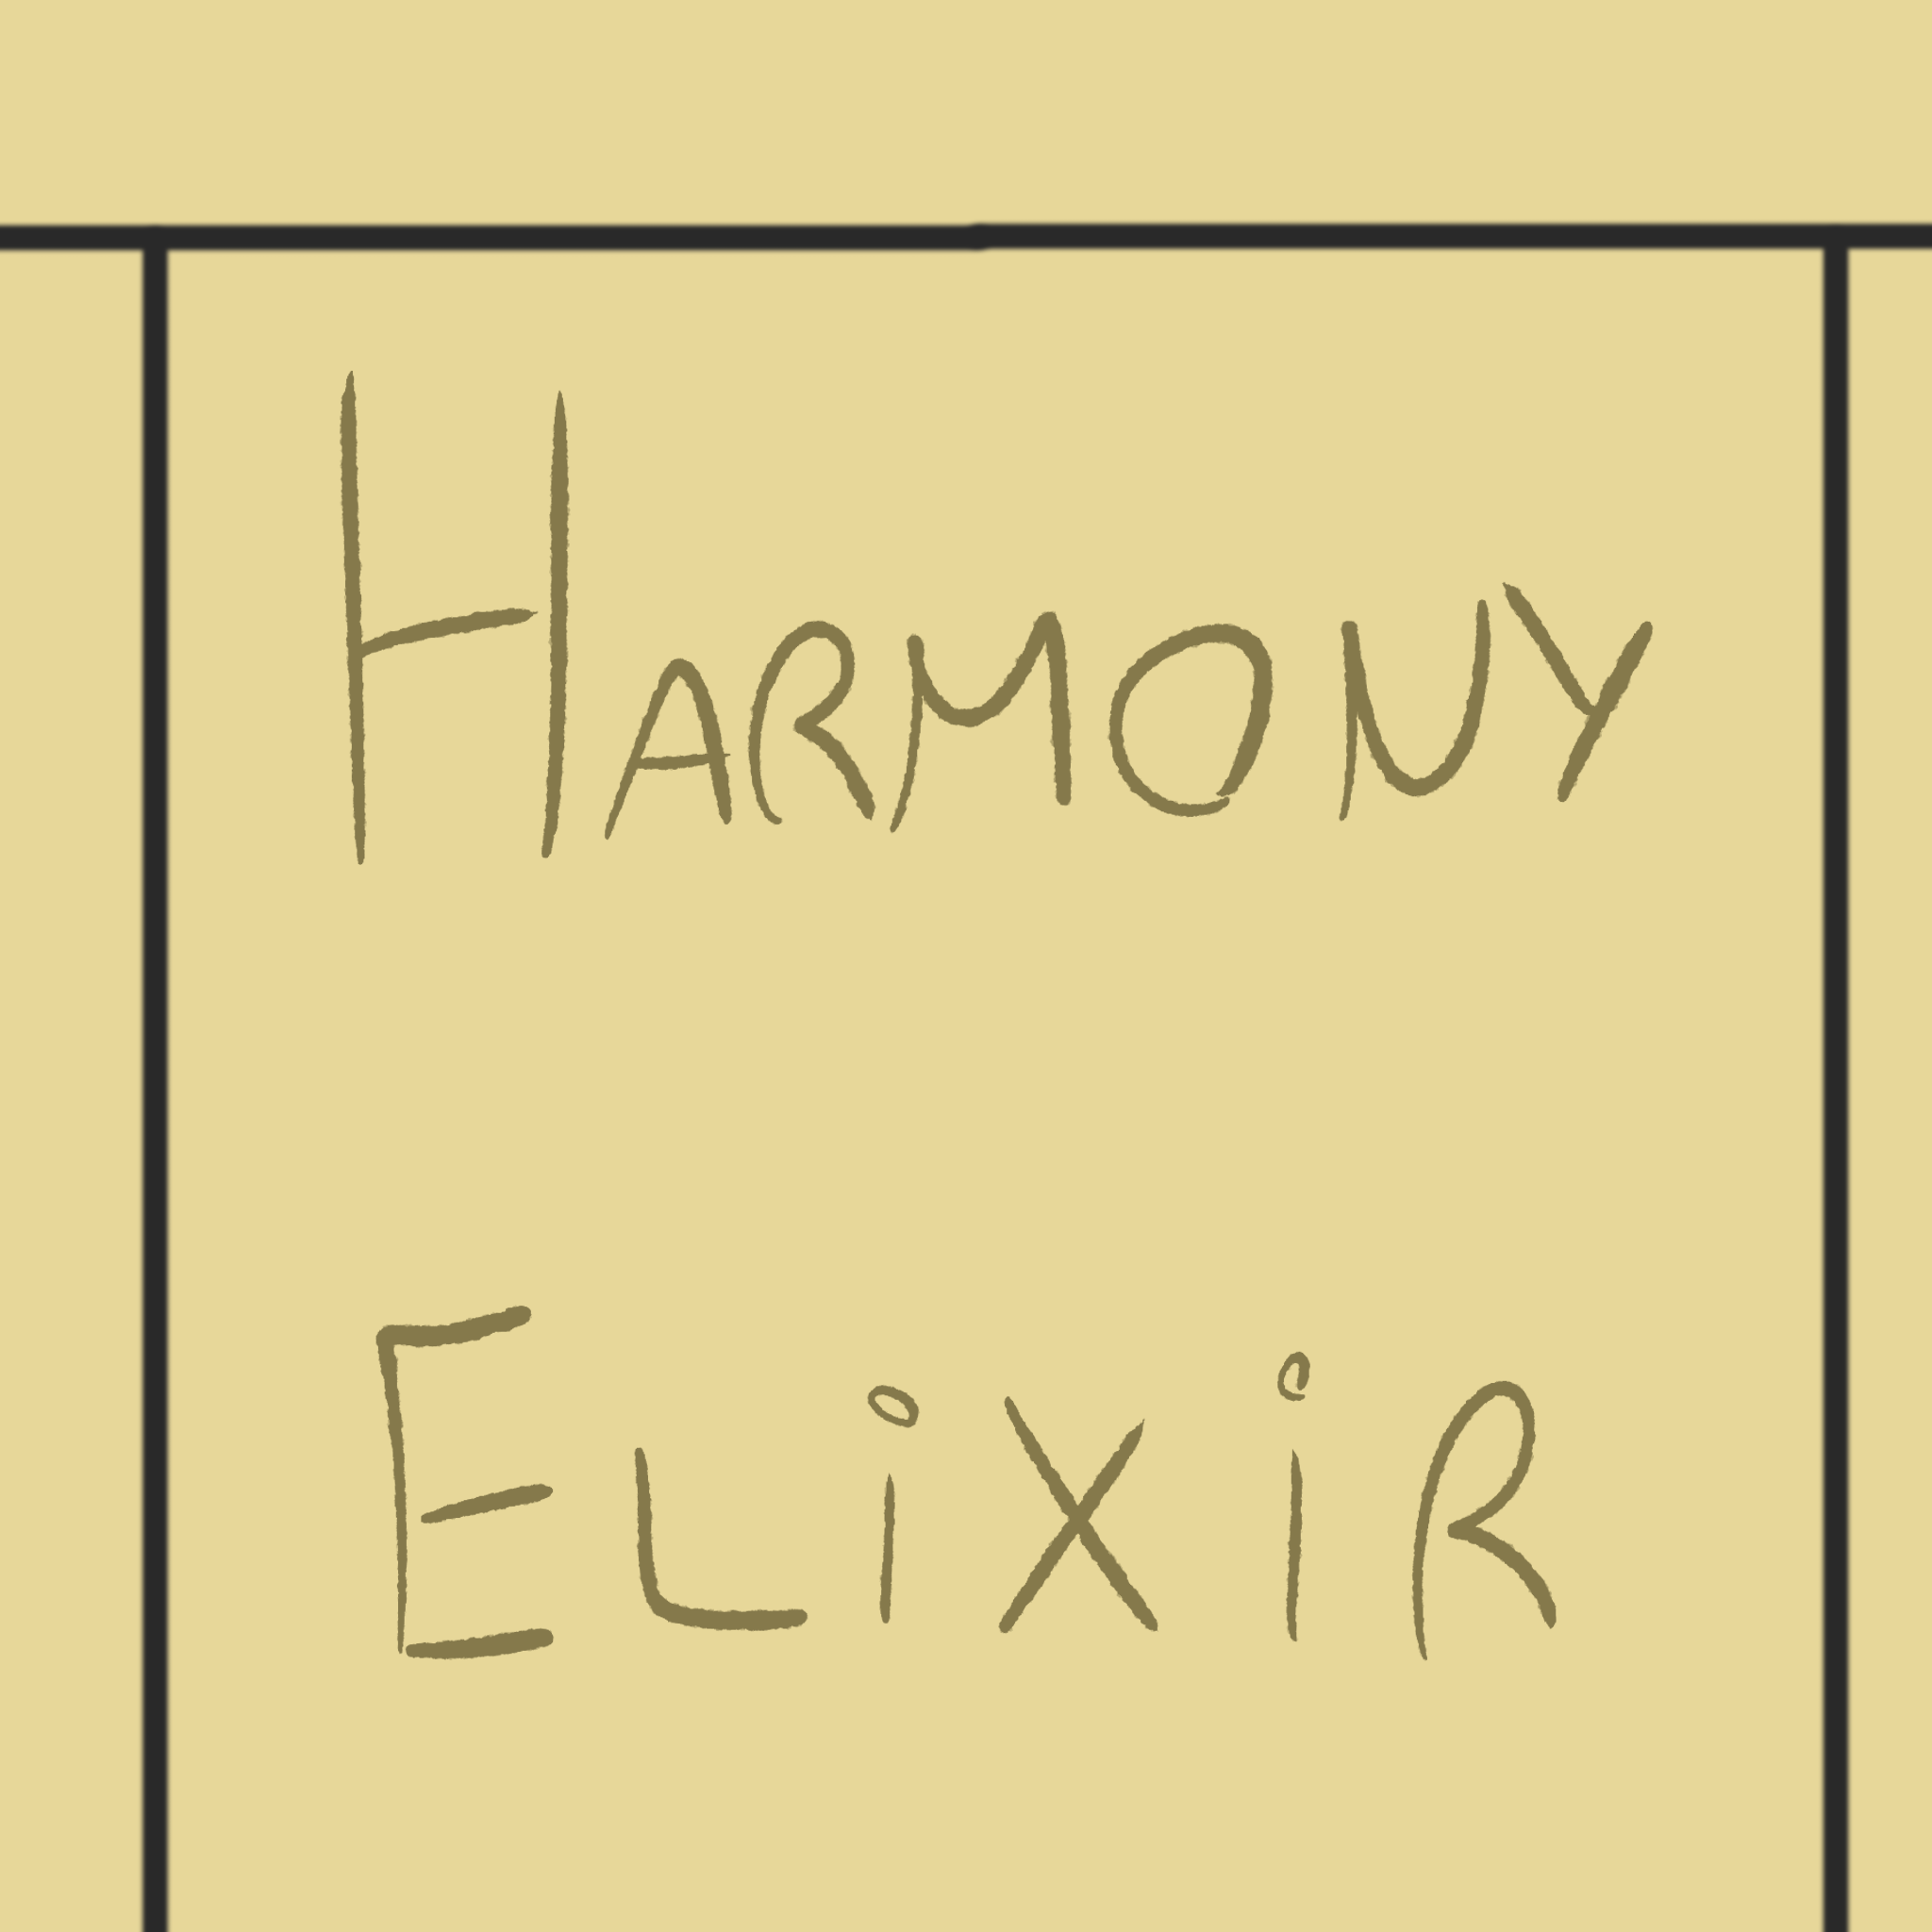 HARMONY
ELiXiR